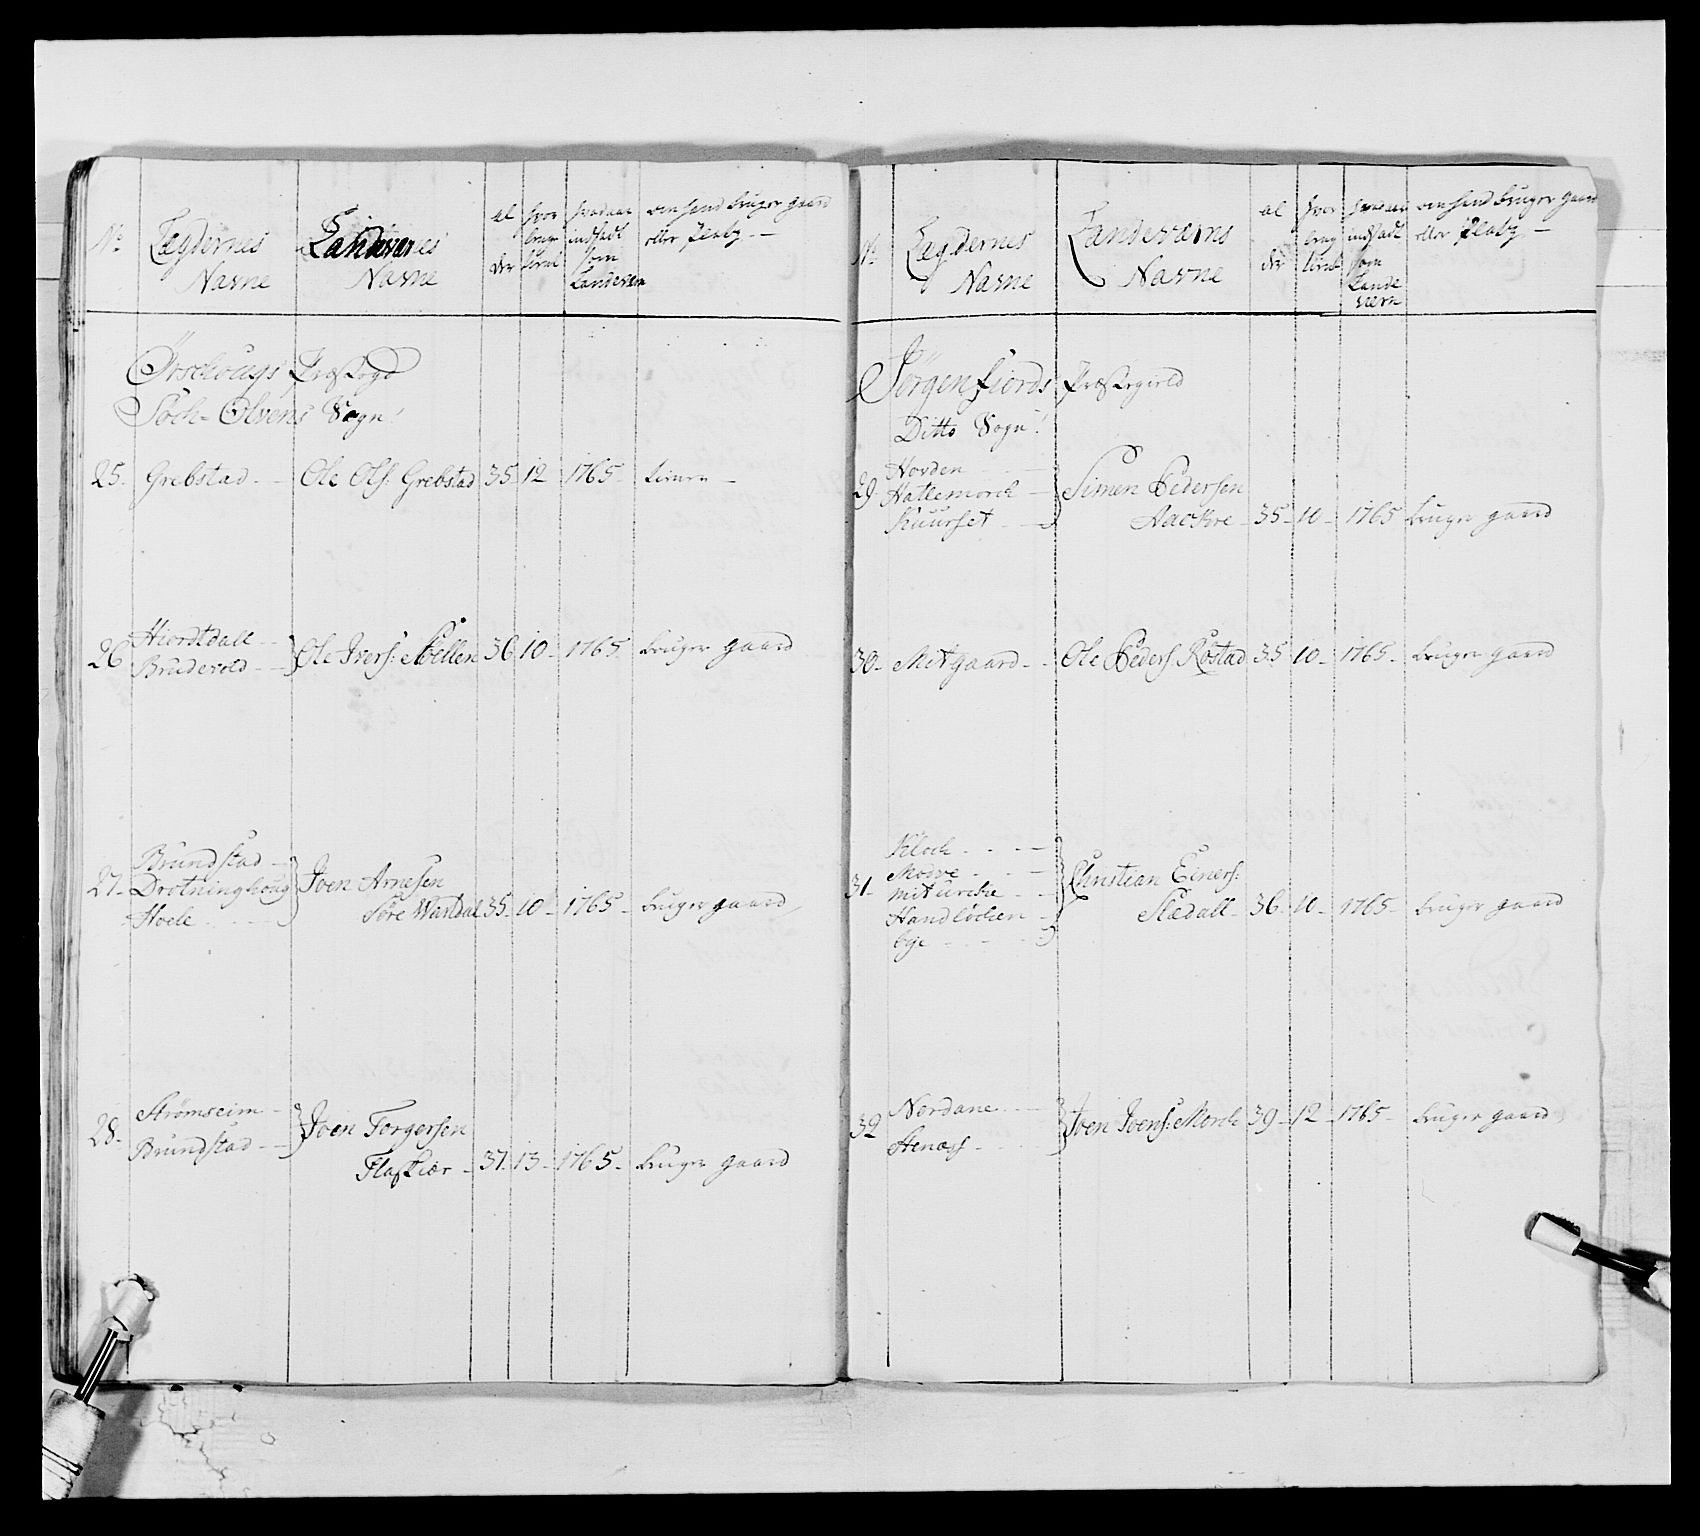 No
Lægdernes
Navne
Landevernes
Navne
al
der
hvor
lenge
tient
hvad aar
indsadt
som
Landevern
om hand bruger gaard
eller Plads
Ørschougs Præstegd
Søch-Elvens Sogn!
25. Grebstad Ole Ols: Grebstad 35 12 1765 tiener
26 Hiordtdall
Brudevold
Ole Ivers: Møllen 36 10 1765 bruger gaard
27 Brundstad
Drotninghoug
Hvele
Joen Arnesen
Søre Wartdal 35 10 1765 bruger gaard
28. Strømseim
Brundstad
Joen Torgersen
Flaskiær 37 13 1765 bruger gaard
No
Lægdernes
Navne
Landeværns
Navne
al
der
hvor
leng
tient
hvad aar
indsadt
som
Lande
værn
om hand bruger gaard
eller Plads
Jørgenfiords Præstegield
Ditto Sogn!
29 Hovden
Hatlemarck
Kuurset
Simen Pedersen
Aackre 35 10 1765 bruger gaard
30 Mitgaard Ole Peders: Røstad 35 10 1765 bruger gaard
31 Klock
Mowe
Miturche
Handløcken
Eje
Christian Einers:
Stædall 36 10 1765 bruger gaard
32 Nordane
Stenæss
Joen Joens: Morck 39 12 1765 bruger gaard